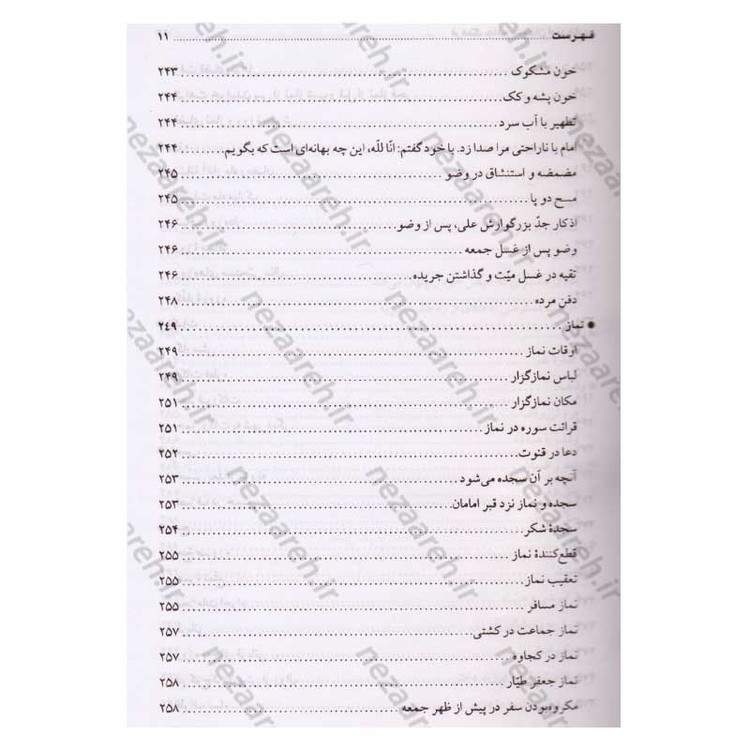 فهرست ........ ۱۱
خون مشکوک ........ ۲۴۳
خون پشه و کک ........ ۲۴۴
تطهیر با آب سرد ........ ۲۴۴
امام با ناراحتی مرا صدا زد. با خود گفتم: انّا للّه، این چه بهانه‌ای است که بگویم ........ ۲۴۴
مضمضه و استنشاق در وضو ........ ۲۴۵
مسح دو پا ........ ۲۴۵
اذکار جدّ بزرگوارش علی، پس از وضو ........ ۲۴۶
وضو پس از غسل جمعه ........ ۲۴۶
تقیه در غسل میّت و گذاشتن جریده ........ ۲۴۶
دفن مرده ........ ۲۴۸
● نماز ........ ۲۴۹
اوقات نماز ........ ۲۴۹
لباس نمازگزار ........ ۲۴۹
مکان نمازگزار ........ ۲۵۱
قرائت سوره در نماز ........ ۲۵۱
دعا در قنوت ........ ۲۵۲
آنچه بر آن سجده می‌شود ........ ۲۵۳
سجده و نماز نزد قبر امامان ........ ۲۵۳
سجدۀ شکر ........ ۲۵۴
قطع‌کنندۀ نماز ........ ۲۵۵
تعقیب نماز ........ ۲۵۵
نماز مسافر ........ ۲۵۵
نماز جماعت در کشتی ........ ۲۵۷
نماز در کجاوه ........ ۲۵۷
نماز جعفر طیّار ........ ۲۵۸
مکروه‌بودن سفر در پیش از ظهر جمعه ........ ۲۵۸
nezaareh.ir